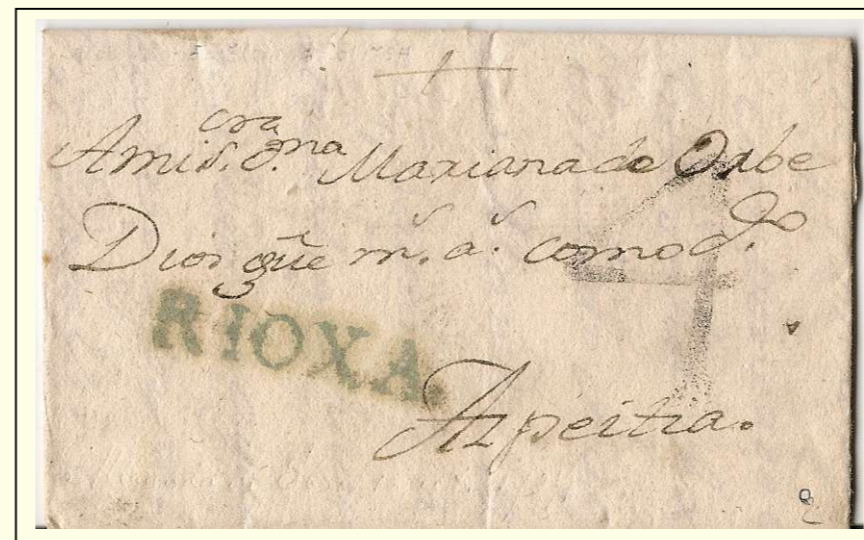 A mi S.ra D.ña Mariana de Orbe
Dios gũe m.s a.s como d.o
4
RIOXA.
Azpeitia.